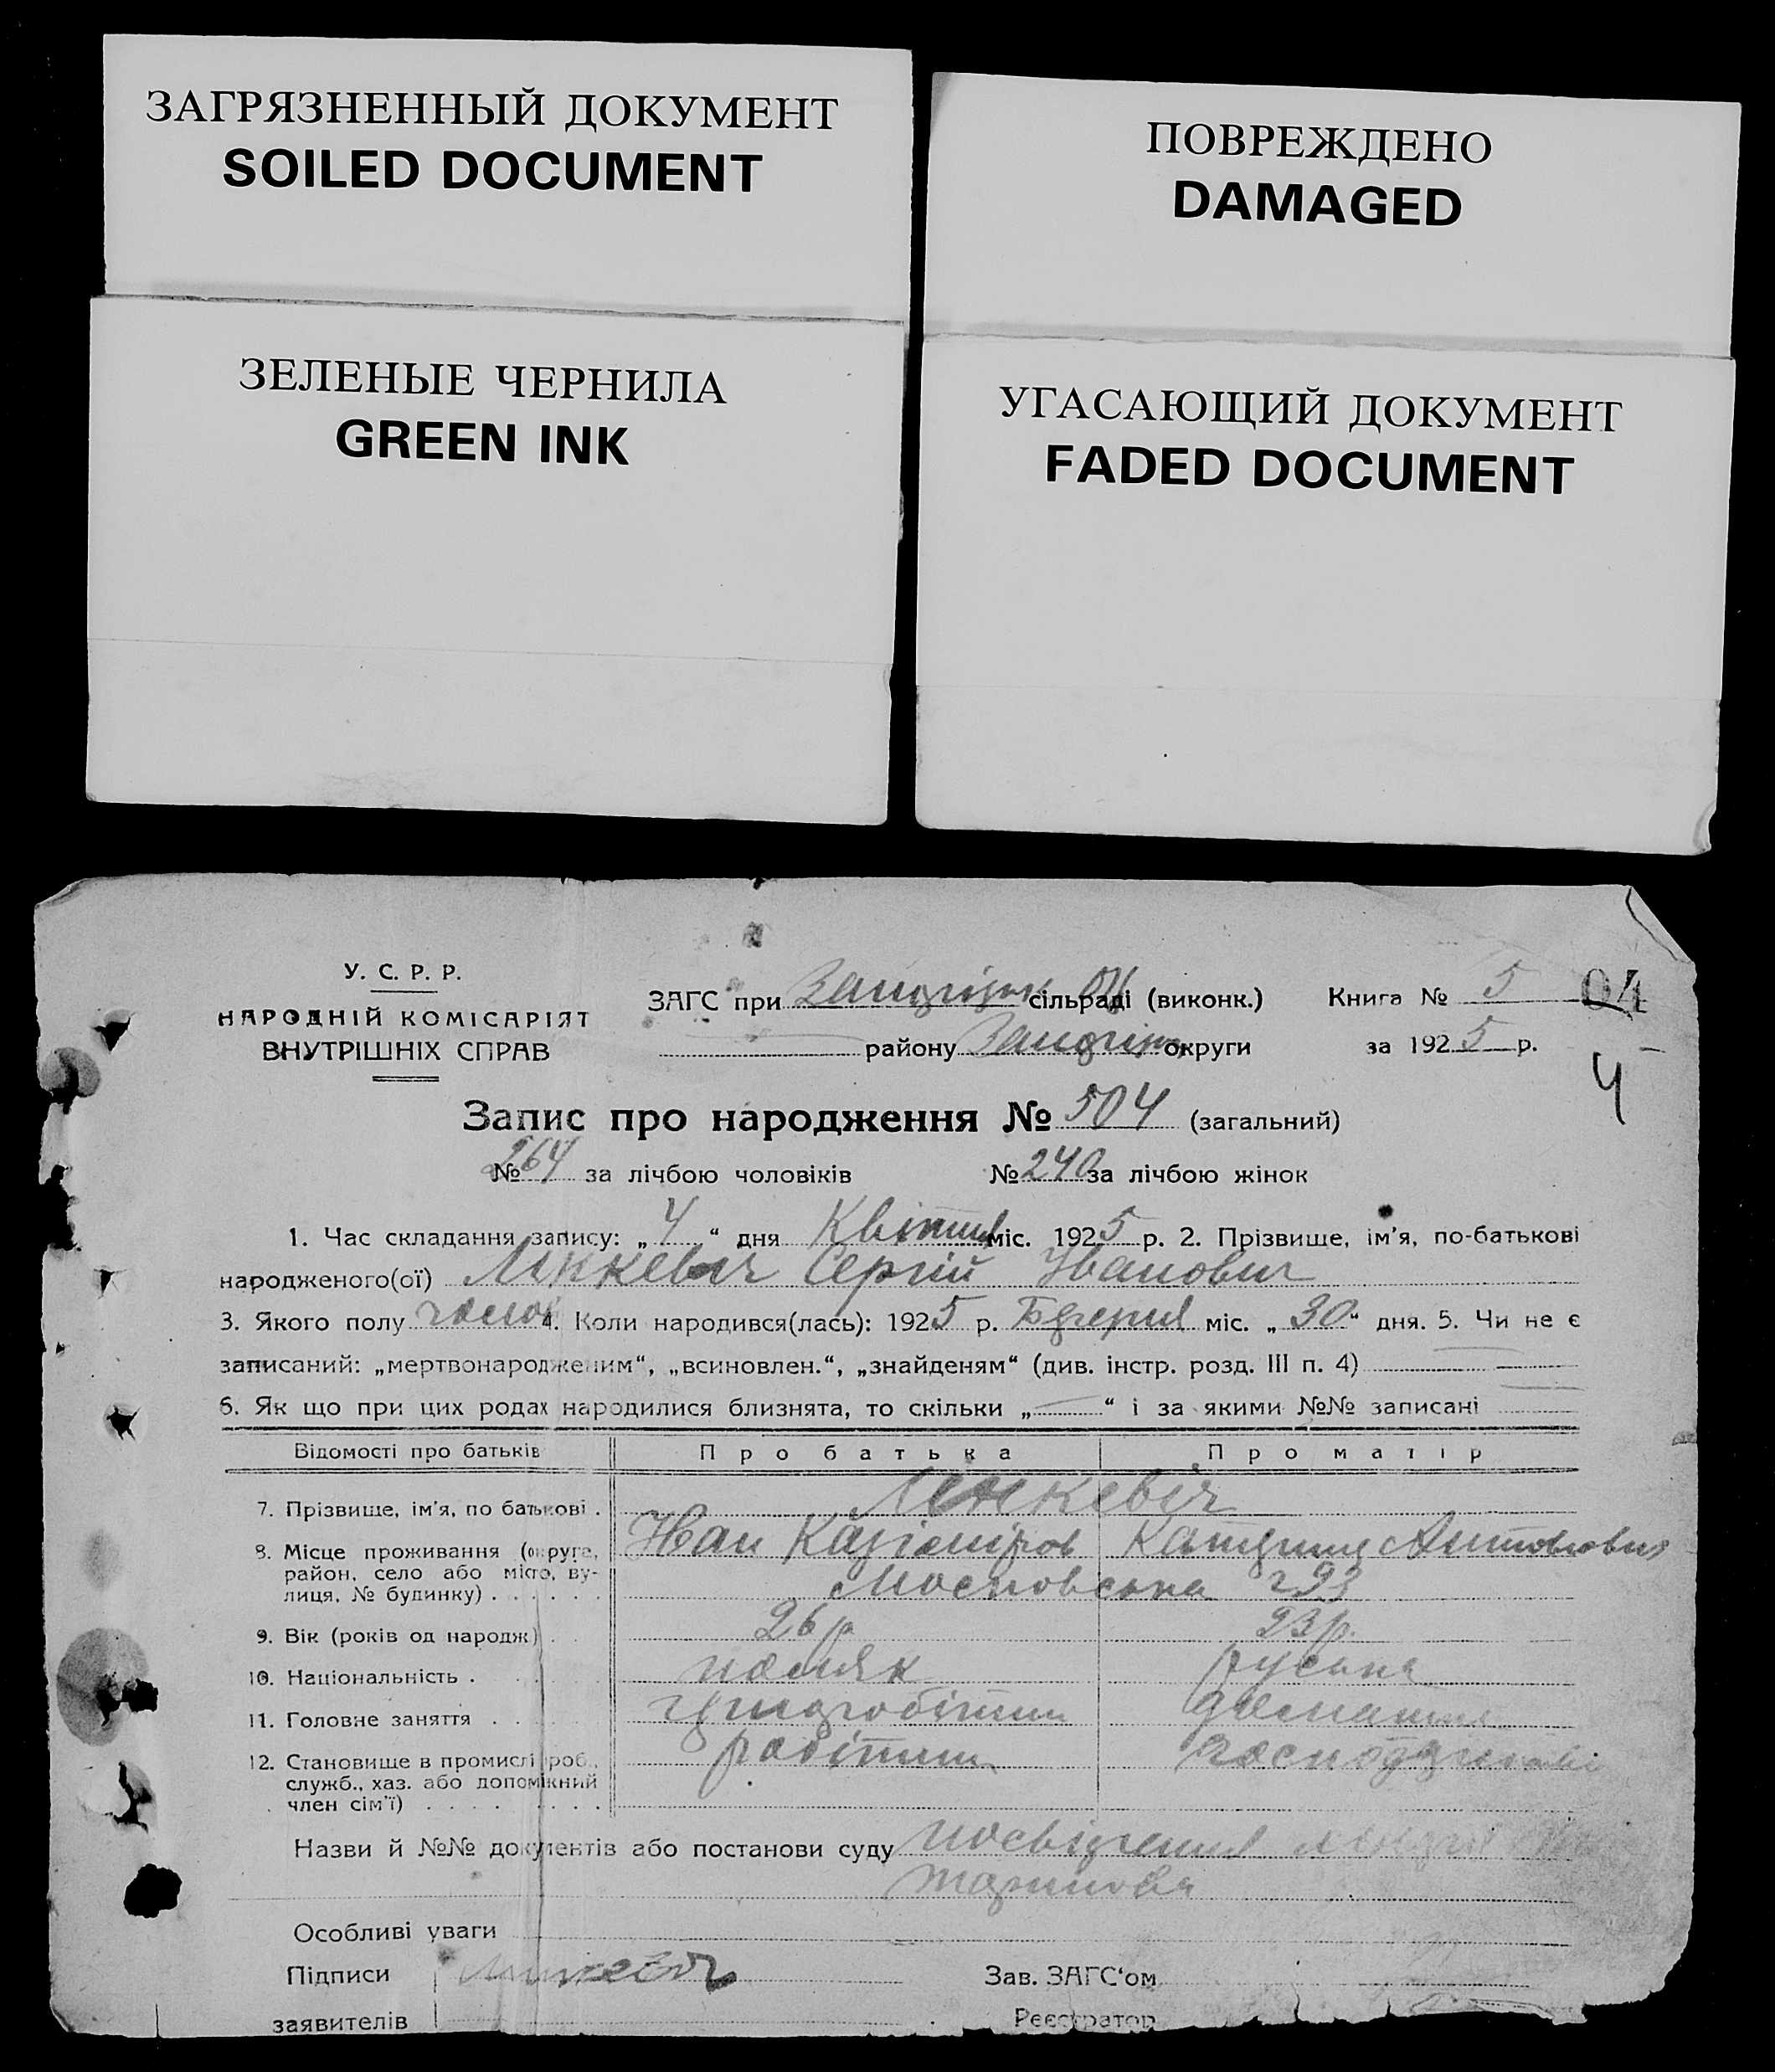 ЗАГРЯЗНЕННЫЙ ДОКУМЕНТ
SOILED DOCUMENT
ПОВРЕЖДЕНО
DAMAGED
ЗЕЛЕНЫЕ ЧЕРНИЛА
GREEN INK
УГАСАЮЩИЙ ДОКУМЕНТ
FADED DOCUMENT
У. С. Р. Р.
НАРОДНІЙ КОМІСАРІЯТ
ВНУТРІШНІХ СПРАВ
ЗАГС при сільраді (виконк.) Книга № 5 04
району округи за 1925 р.
4
Запис про народження № 504 (загальний)
№ 264 за лічбою чоловіків № 240 за лічбою жінок
1. Час складання запису: „ 4 “ дня Квітня міс. 1925 р. 2. Прізвище, ім'я, по-батькові
народженого(ої) Сергій Іванович
3. Якого полу чолов 4. Коли народився(лась): 1925 р. міс. „ 30 “ дня. 5. Чи не є
записаний: „мертвонародженим“, „всиновлен.“, „знайденям“ (див. інстр. розд. III п. 4)
6. Як що при цих родах народилися близнята, то скільки „ “ і за якими №№ записані
Відомості про батьків Про батька Про матір
7. Прізвище, ім'я, по батькові . Мінкевич
8. Місце проживання (округа, Іван Казіміров Катерина Антоновна
район, село або місто, ву-
лиця, № будинку) . . . . . . Московська 293
9. Вік (років од народж) . . 26 р 23 р.
10. Національність . поляк руська
11. Головне заняття . . . домашнє
12. Становище в промислі (роб., робітник господарство
служб., хаз. або допоміжний
член сім'ї) . . . . . . . .
Назви й №№ документів або постанови суду посвідчення
Особливі уваги
Підписи Зав. ЗАГС'ом
заявителів Реєстратор